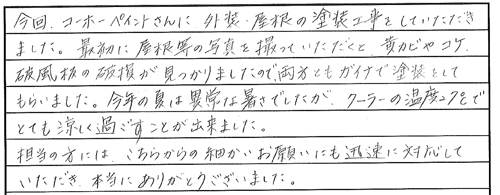 今回、コーホーペイントさんに 外装・屋根の塗装工事をしていただき
ました。最初に屋根等の写真を撮っていただくと、黄カビやコケ、
破風板の破損が見つかりましたので、両方ともガイナで塗装をして
もらいました。今年の夏は異常な暑さでしたが、クーラーの温度27℃で
とても涼しく過ごすことが出来ました。
担当の方には、こちらからの細かいお願いにも迅速に対応して
いただき、本当にありがとうございました。